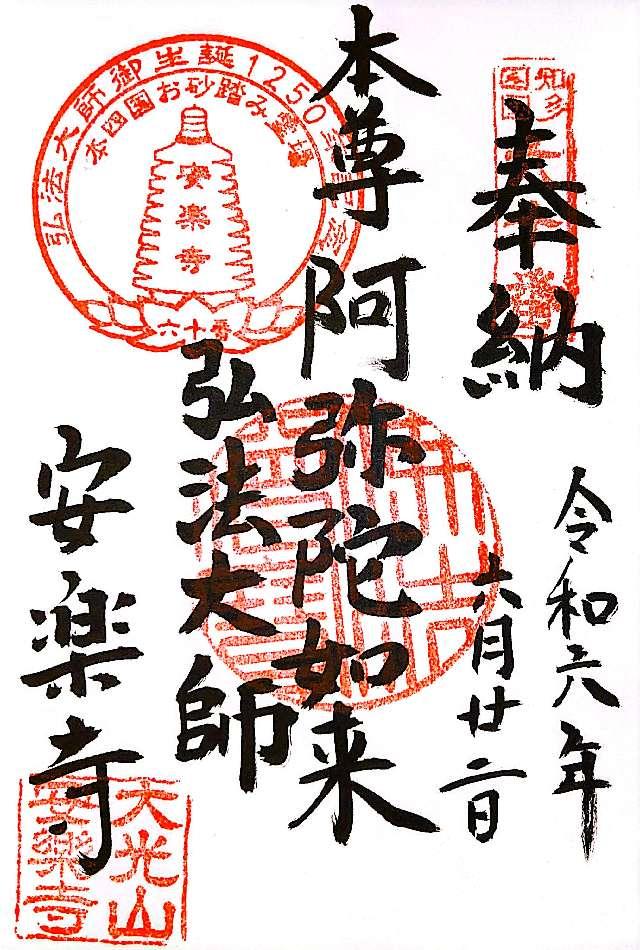 奉納
令和六年
六月廿二日
本尊阿弥陀如来
弘法大師
安楽寺
弘法大師御生誕1250年記念
本四国お砂踏み霊場
安楽寺
六十番
知多
大光山
安樂寺